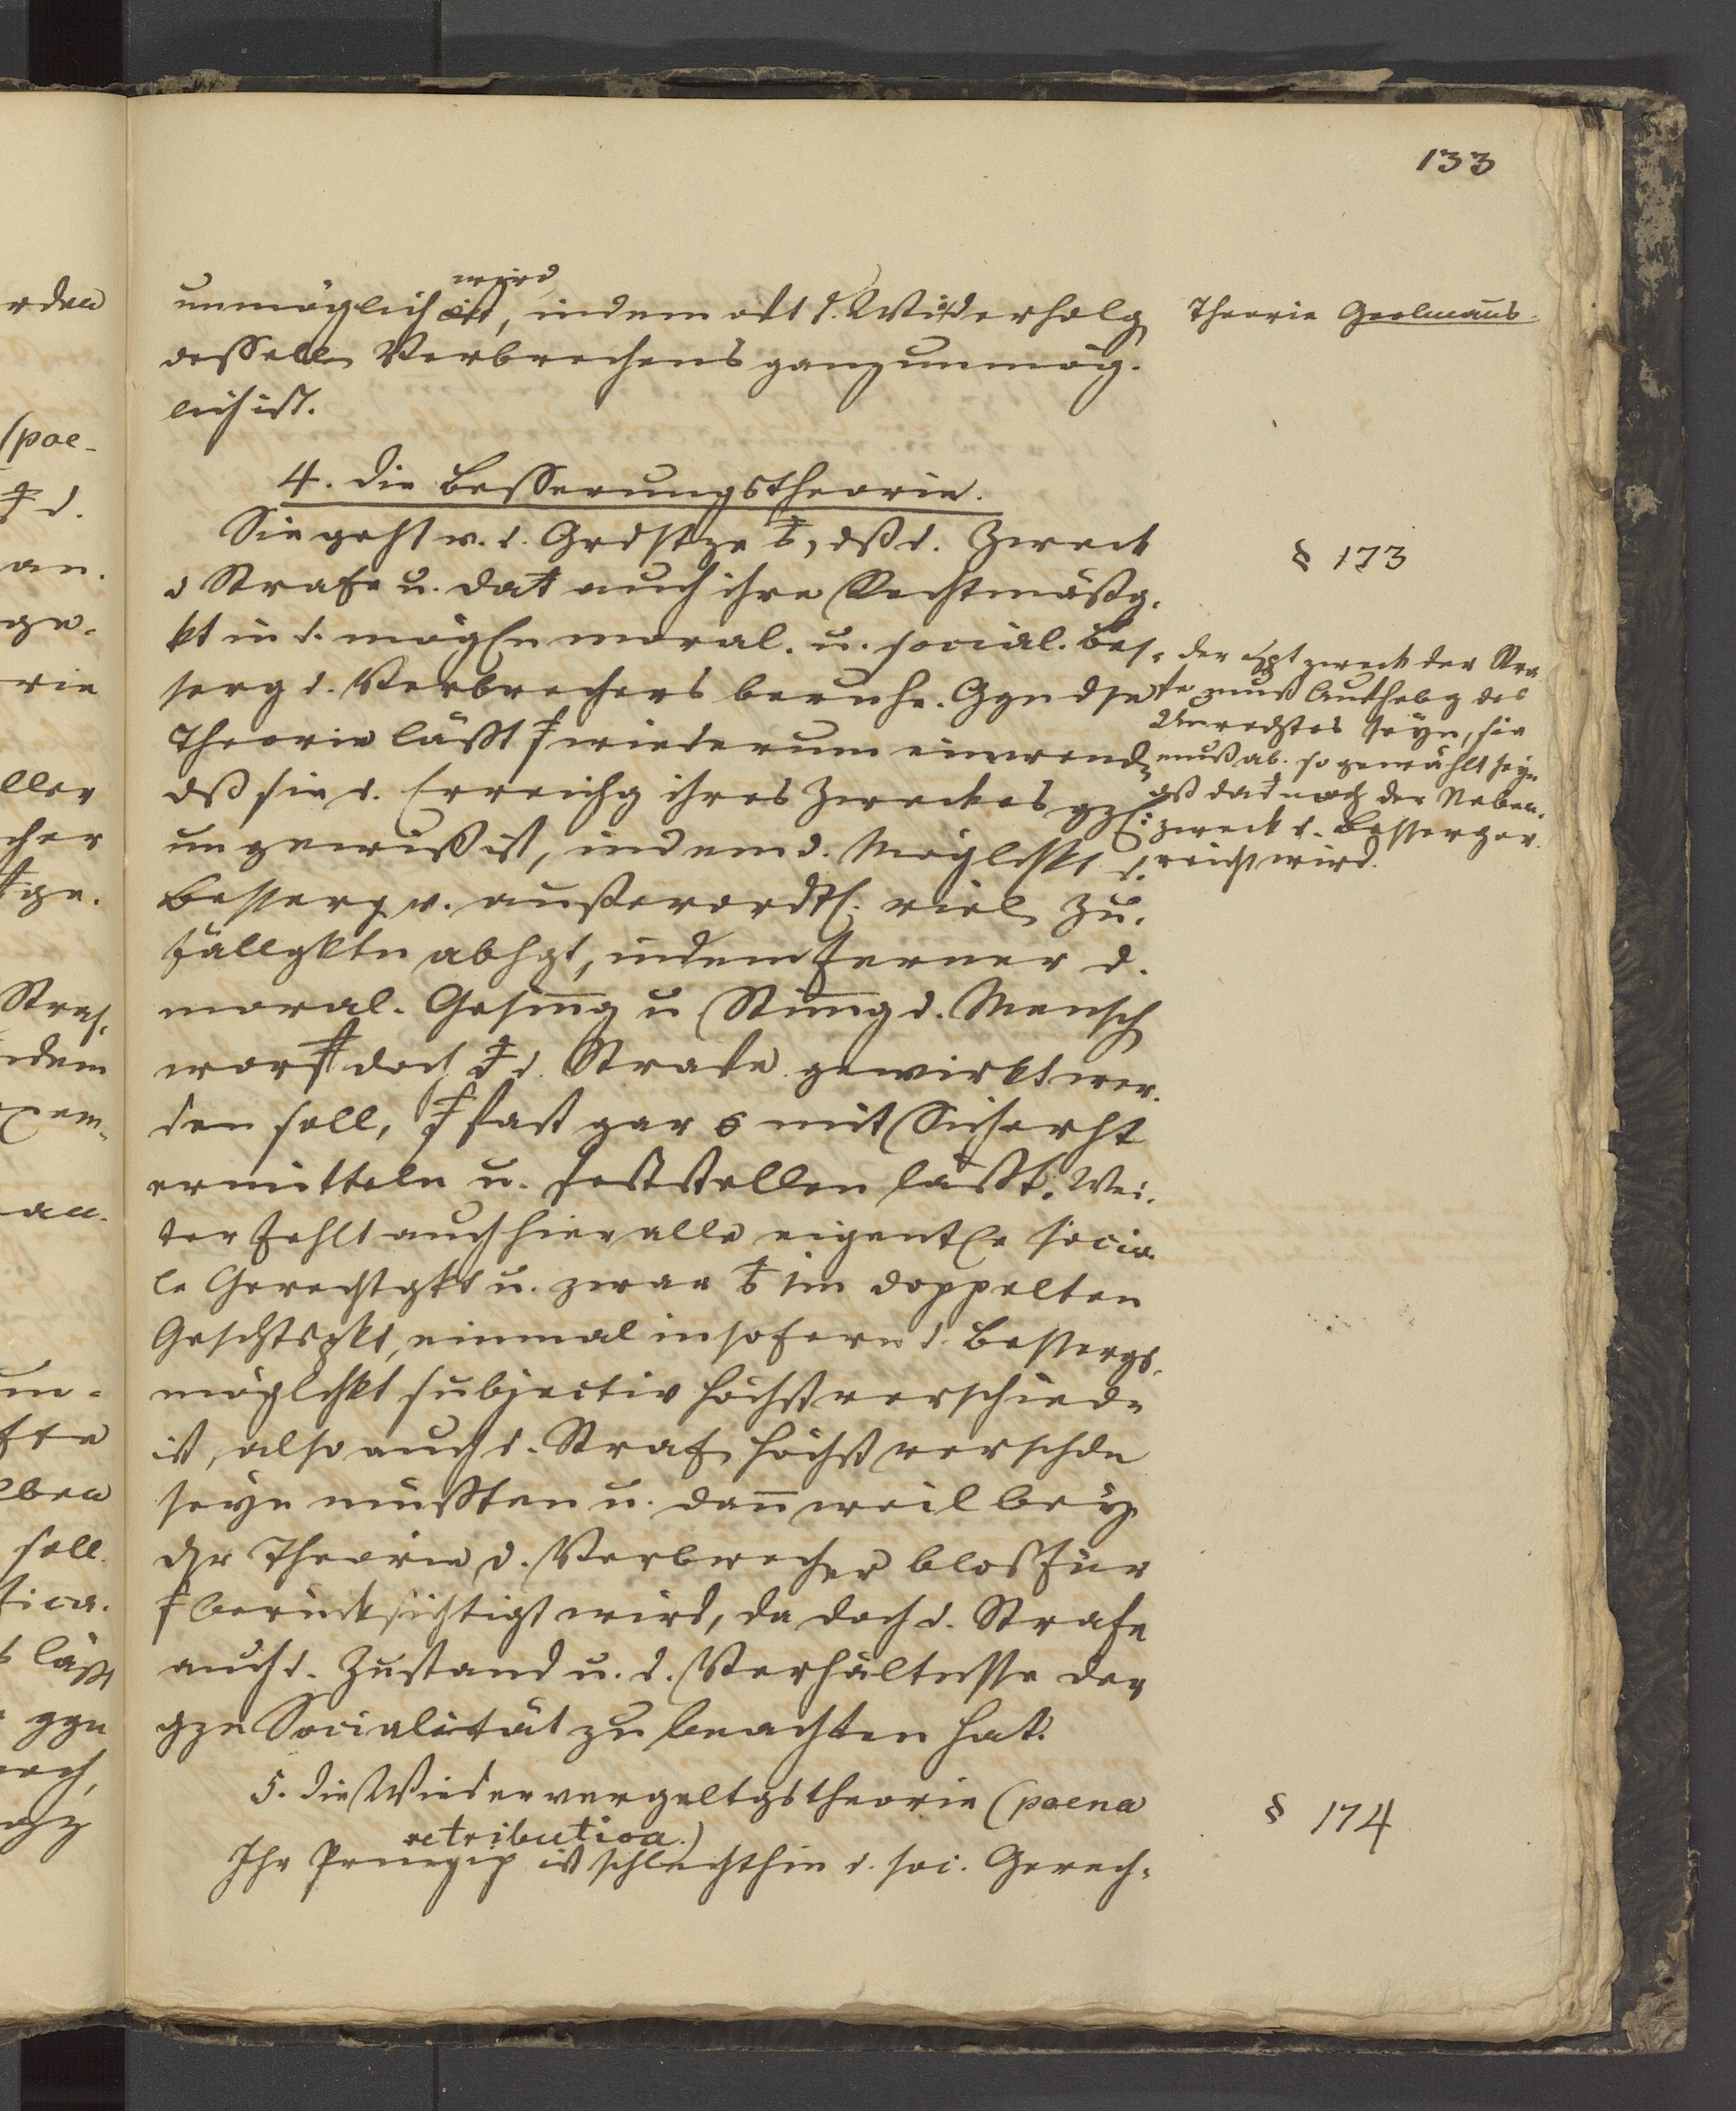 133
wird
unmöglich ist, indem oft d. Wiederholg
desselb Verbrechens ganz unmög-
lich ist.
Theorie Grolmans.
4. Die Besserungstheorie.
Sie geht v. d. Grdsatze , dß d. Zweck
§ 173
d Strafe u. auch ihre Rechtmäßg-
kt in d. mögln moral. u. social. Bes-
serg d. Verbrechers beruhe. Ggn dse
Theorie läßt wiederum einwend
dß sie d. Erreichg ihres Zweckes gzl:
ungewiß ist, indem d. Möglichkt d.
Besserg v. außerordtl: viel Zu-
fälligktn abhgt, indem ferner d.
moral. Gesinng u Stimmg d. Mensch
doch d. Strafe gewirkt wer-
den soll, fast gar mit Sicherht
ermitteln u. feststellen läßt. Wei-
ter fehlt auch hier alle eigentle socia-
le Gerechtgkt u. zwar im doppelten
Geschtspkt, einmal insofern d. Bessergs-
möglichkt subjectiv höchst verschieden
ist, also auch d. Straf höchst verschdn
seyn müßten u. dann weil bey
dsr Theorie d. Verbrecher blos für
berücksichtigt wird, da doch d. Strafe
auch d. Zustand u. d. Verhältnisse der
gzn Socialität zu beachten hat.
der Hpt zweck der Stra
fe muß Aufhebg des
Unrechtes seyn, sie
muß ab. so gewählt seyn
dß noch der Neben-
zweck d. Besserg er-
reicht wird.
5. Die Wiedervergeltgstheorie (poena
retributiva.)
§ 174
Ihr Princip ist schlechthin d. soc. Gerech-